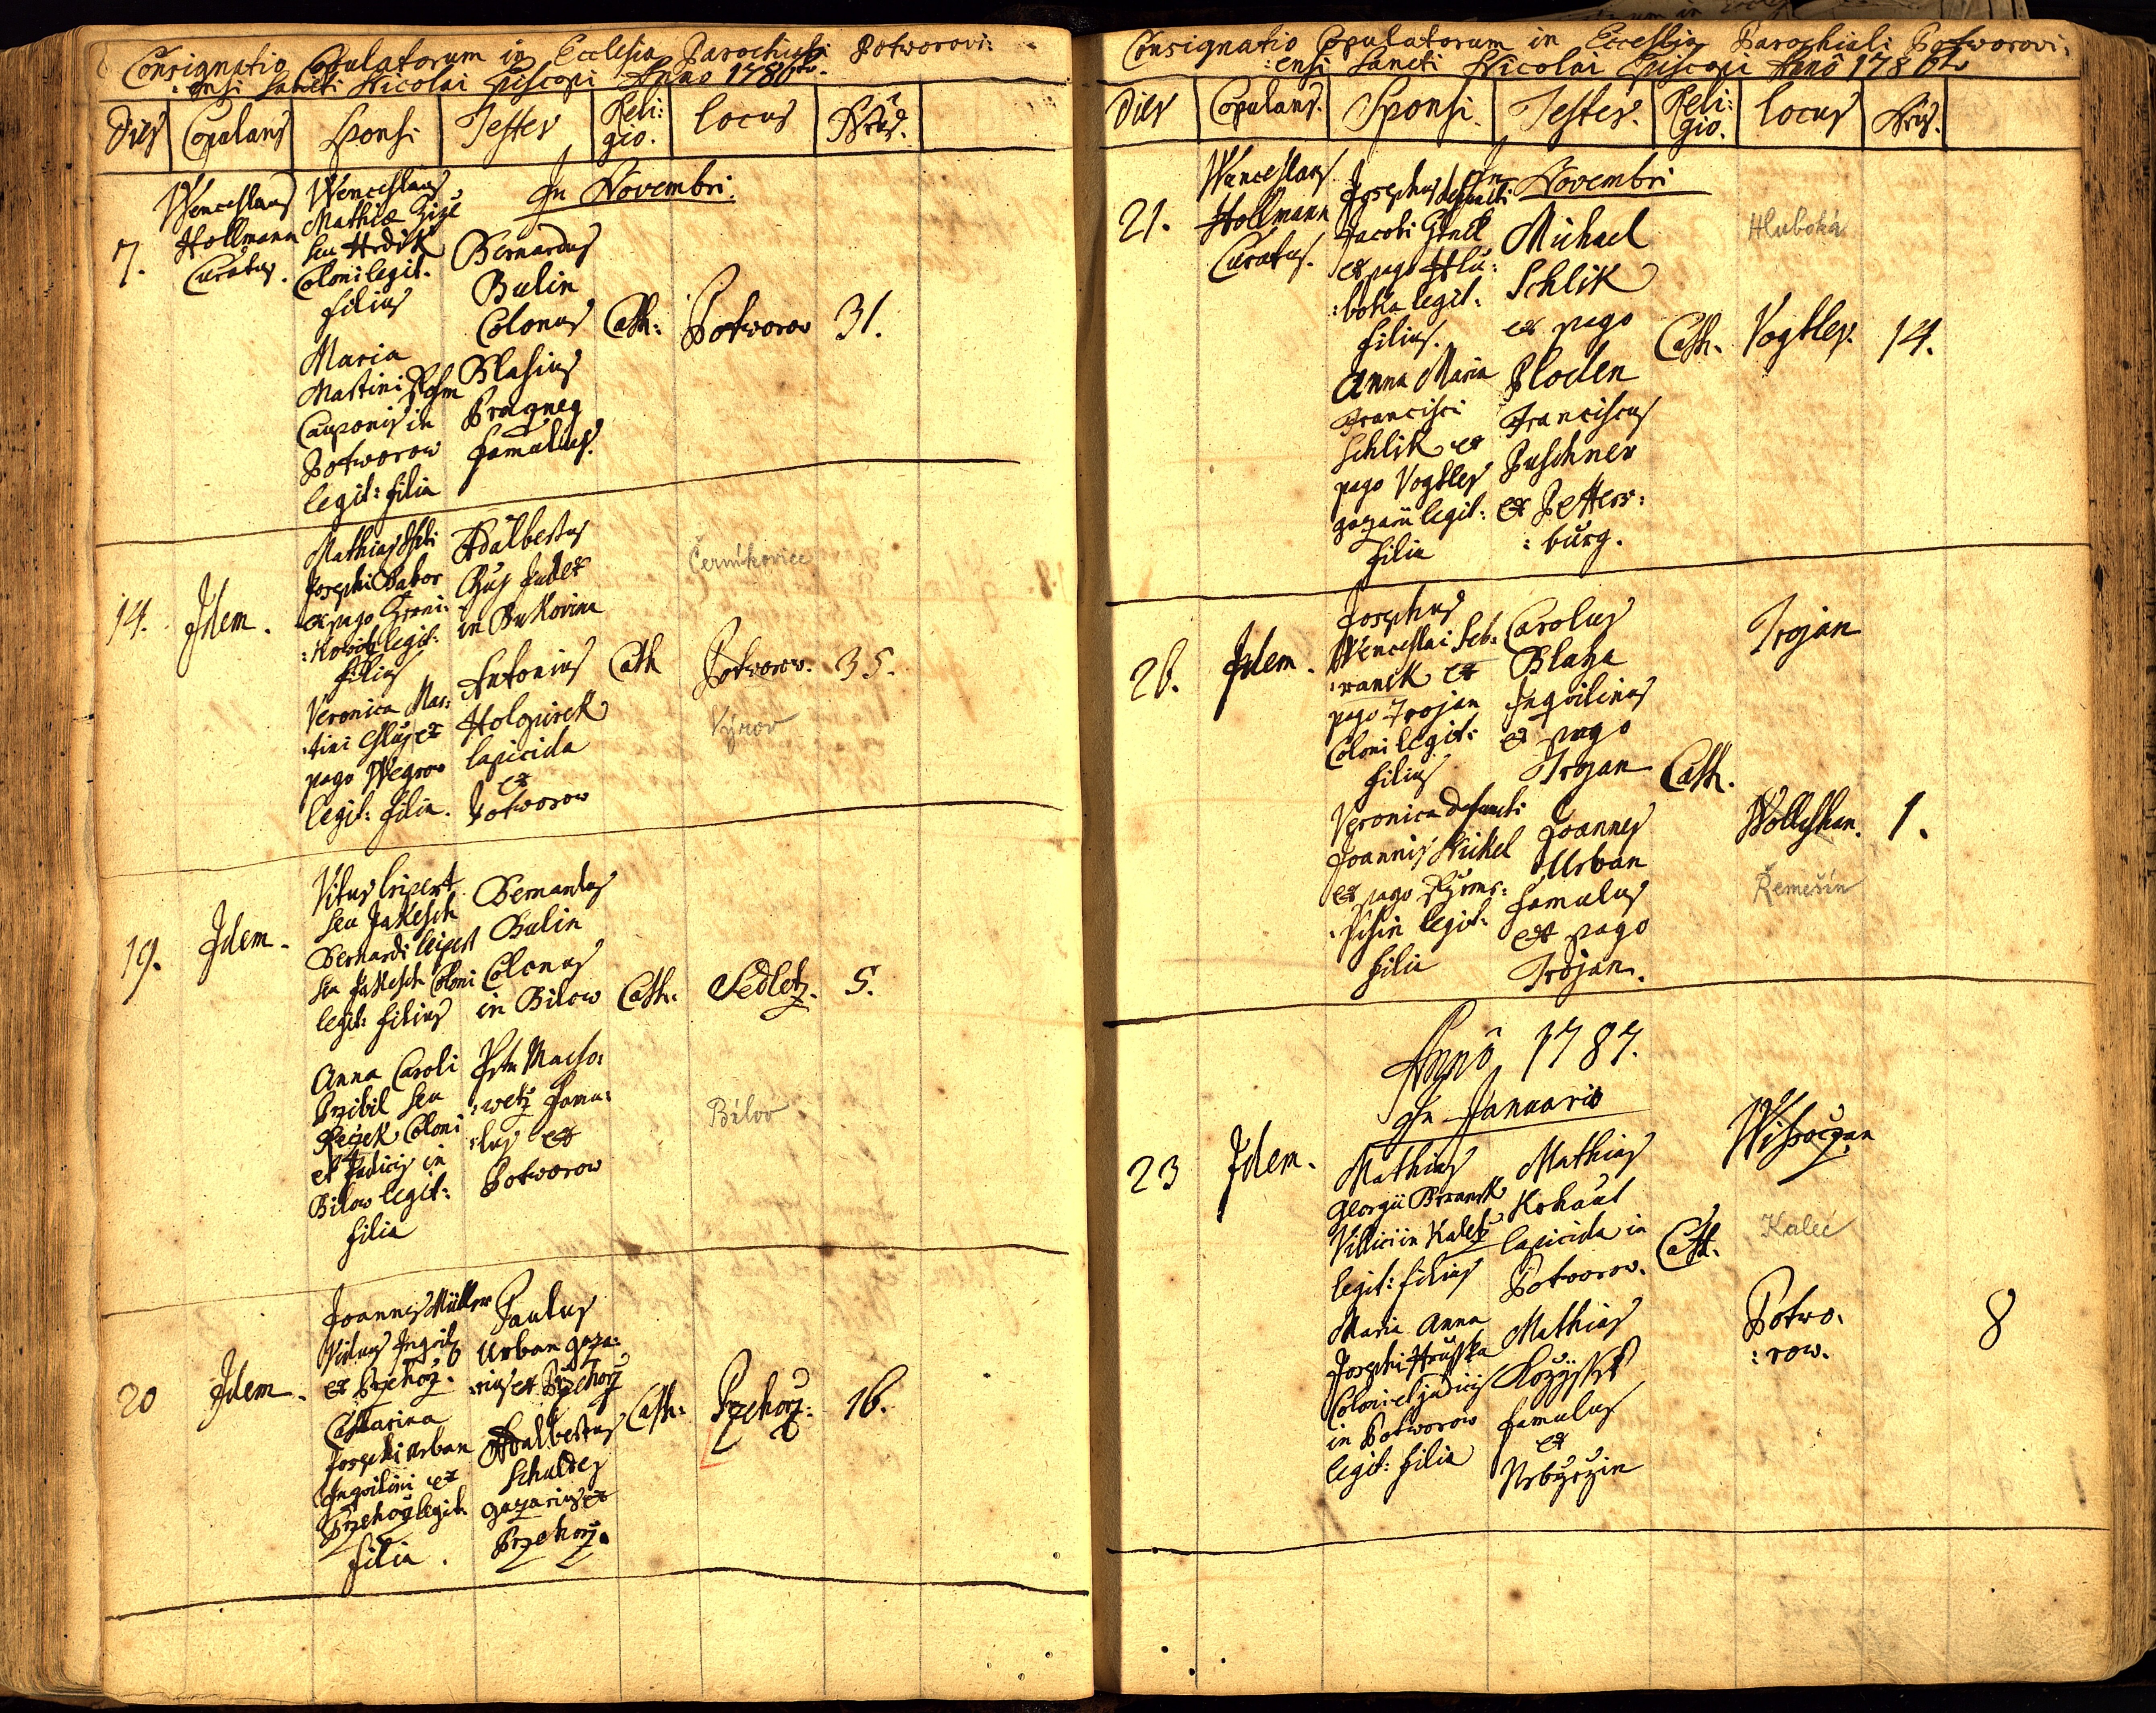 Consignatio Copulatorum in Ecclesia Parochiali Potworovi:
:ensi Sancti Nicolai Episcopi Anno 1786to.
Dies Copulans Sponsi Testes Reli: locus
gio.
In Novembri.
7.
Wenceslaus
Hollmann
Curatus.
Wenceslaus
Mathiæ
seu Hrdik
Coloni legit.
filius
Maria
Martini
Cauponis in
Potworow
legit: filia
Bernardus
Bulin
Colonus
Blasius
famulus.
Cath:
Potworow
31.
14.
Idem.
Mathias
Josephi Babor
ex pago
legit:
filius
Veronica Mar:
:tini
pago
legit: filia.
Adalbertus
Judex
in Bukovina
Antonius
lapicida
ex
Potworow
Cath
Černíkovice
Potworow.
Výrov
35.
19.
Idem.
Vitus Leipert
seu Jakesch
Bernardi Leipert
seu Jakesch Coloni
legit: filius
Anna Caroli
Przibil seu
Coloni
et Judicis in
Bilow legit:
filia
Bernardus
Bulin
Colonus
in Bilow
:wetz famu:
:lus ex
Potworow
Cath:
Sedletz.
Bílov
5.
20
Idem.
Joannes Müller
Viduus
ex Przehorz.
Catharina
Josephi Urban
Inquilini ex
Przehorz legit.
filia.
Paulus
Urban gaza:
:rius ex Przehorz
Adalbertus
Schuldes
gazarius ex
Przehorz.
Cath:
Przehorz:
16.
Consignatio Copulatorum in Ecclesia Parochiali Potworovi:
:ensi Sancti Nicolai Episcopi Anno 1786to
Dies Copulans. Sponsi. Testes. Reli: locus
gio.
In Novembri
21.
Wenceslaus
Hollmann
Curatus.
Josephus defuncti
Jacobi
ex pago Hlu:
:boka legit.
filius.
Anna Maria
Francisci
Schlik ex
pago Vogtles
gazarii legit:
filia
Michael
Schlik
ex pago
Ploden
Franciscus
Puschner
ex Petters:
:burg.
Cath.
Hluboká
Vogtles.
14.
26.
Idem.
Josephus
Wenceslai Seb:
:ranek ex
pago Trojan
Coloni legit:
filius
Veronica defuncti
Joannis Nickel
ex pago
:schin legit.
filia
Carolus
Blaha
Inquilinus
ex pago
Trojan
Joannes
Urban
famulus
ex pago
Trojan.
Cath.
Trojan
Wolleschan.
Řemešín
1.
Anno 1787.
In Januario
23
Idem.
Mathias
Georgii Beranek
Villici in Kaletz
legit: filius
Maria Anna
Josephi Hruschka
Coloni et judicis
in Potworow
legit: filia
Mathias
Kohaut
lapicida in
Potworow.
Mathias
famulus
ex
Cath.
Wissoczan
Kaleč
Potwo:
:row.
8